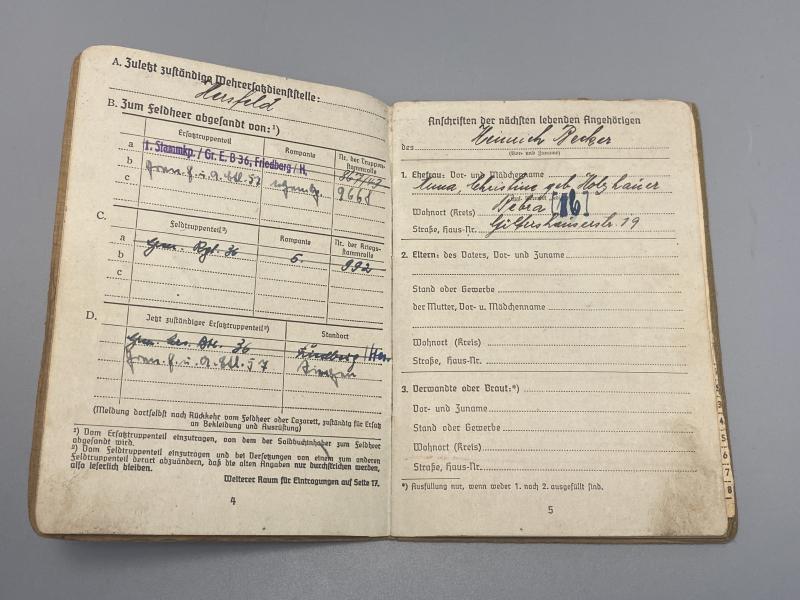 A. Zuletzt zuständige Wehrersatzdienststelle:
Hersfeld
B. Zum Feldheer abgesandt von:¹)
Ersatztruppenteil Kompanie Nr. der Truppenstammrolle
a 1. Stammkp. / Gr. E. B 36, Friedberg / H. 867/49
b Gren. E. u. A. Btl. 57 9668
c
C.
Feldtruppenteil²) Kompanie Nr. der Kriegsstammrolle
a
b Gren. Rgt. 36 5. 992
c
D.
Jetzt zuständiger Ersatztruppenteil²) Standort
Gren. Ers. Btl. 36 Friedberg / Hessen
Gren. E. u. A. Btl. 57 Siegen
(Meldung dortselbst nach Rückkehr vom Feldheer oder Lazarett, zuständig für Ersatz
an Bekleidung und Ausrüstung)
¹) Vom Ersatztruppenteil einzutragen, von dem der Soldbuchinhaber zum Feldheer
abgesandt wird.
²) Vom Feldtruppenteil einzutragen und bei Versetzungen von einem zum anderen
Feldtruppenteil derart abzuändern, daß die alten Angaben nur durchstrichen werden,
also leserlich bleiben.
Weiterer Raum für Eintragungen auf Seite 17.
4
Anschriften der nächsten lebenden Angehörigen
des Heinrich Becker
(Vor- und Zuname)
1. Ehefrau: Vor- und Mädchenname
Anna, Christine geb Holzhauer
Wohnort (Kreis) Bebra [16]
Straße, Haus-Nr. Gilfershäuserstr. 19
2. Eltern: des Vaters, Vor- und Zuname
Stand oder Gewerbe
der Mutter, Vor- u. Mädchenname
Wohnort (Kreis)
Straße, Haus-Nr.
3. Verwandte oder Braut:*)
Vor- und Zuname
Stand oder Gewerbe
Wohnort (Kreis)
Straße, Haus-Nr.
*) Ausfüllung nur, wenn weder 1. noch 2. ausgefüllt sind.
5
4
5
6
7
8